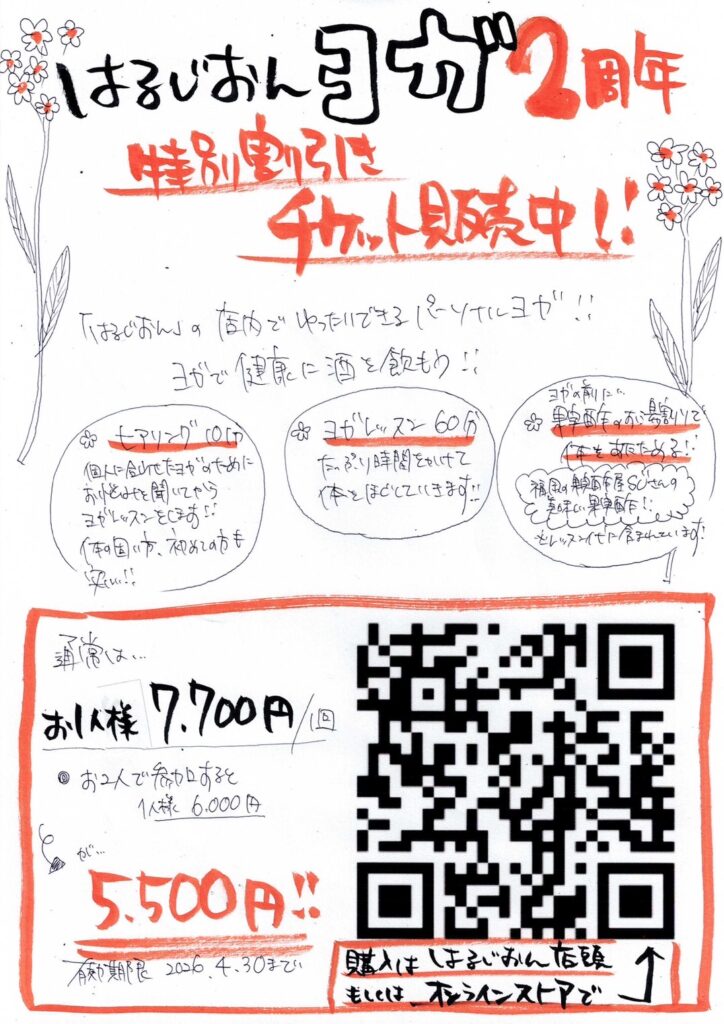 はるじおんヨガ2周年
特別割引き
チケット販売中!!
「はるじおん」の店内でゆったりできるパーソナルヨガ!!
ヨガで健康に酒を飲もう!!
ヒアリング10分
個人に合わせたヨガのために
お悩みを聞いてから
ヨガレッスンをします!!
体の固い方、初めての方も
安心!!
ヨガレッスン60分
たっぷり時間をかけて
体をほぐしていきます!!
ヨガの前に…
果実酢のお湯割りで
体をあたためる!!
福岡の果実酢屋SUさんの
美味しい果実酢!!
※レッスン代に含まれています!
通常は…
お1人様 7.700円/1回
お2人で参加すると
1人様 6.000円
が…
5.500円!!
有効期限 2026.4.30まで
購入ははるじおん店頭
もしくは オンラインストアで